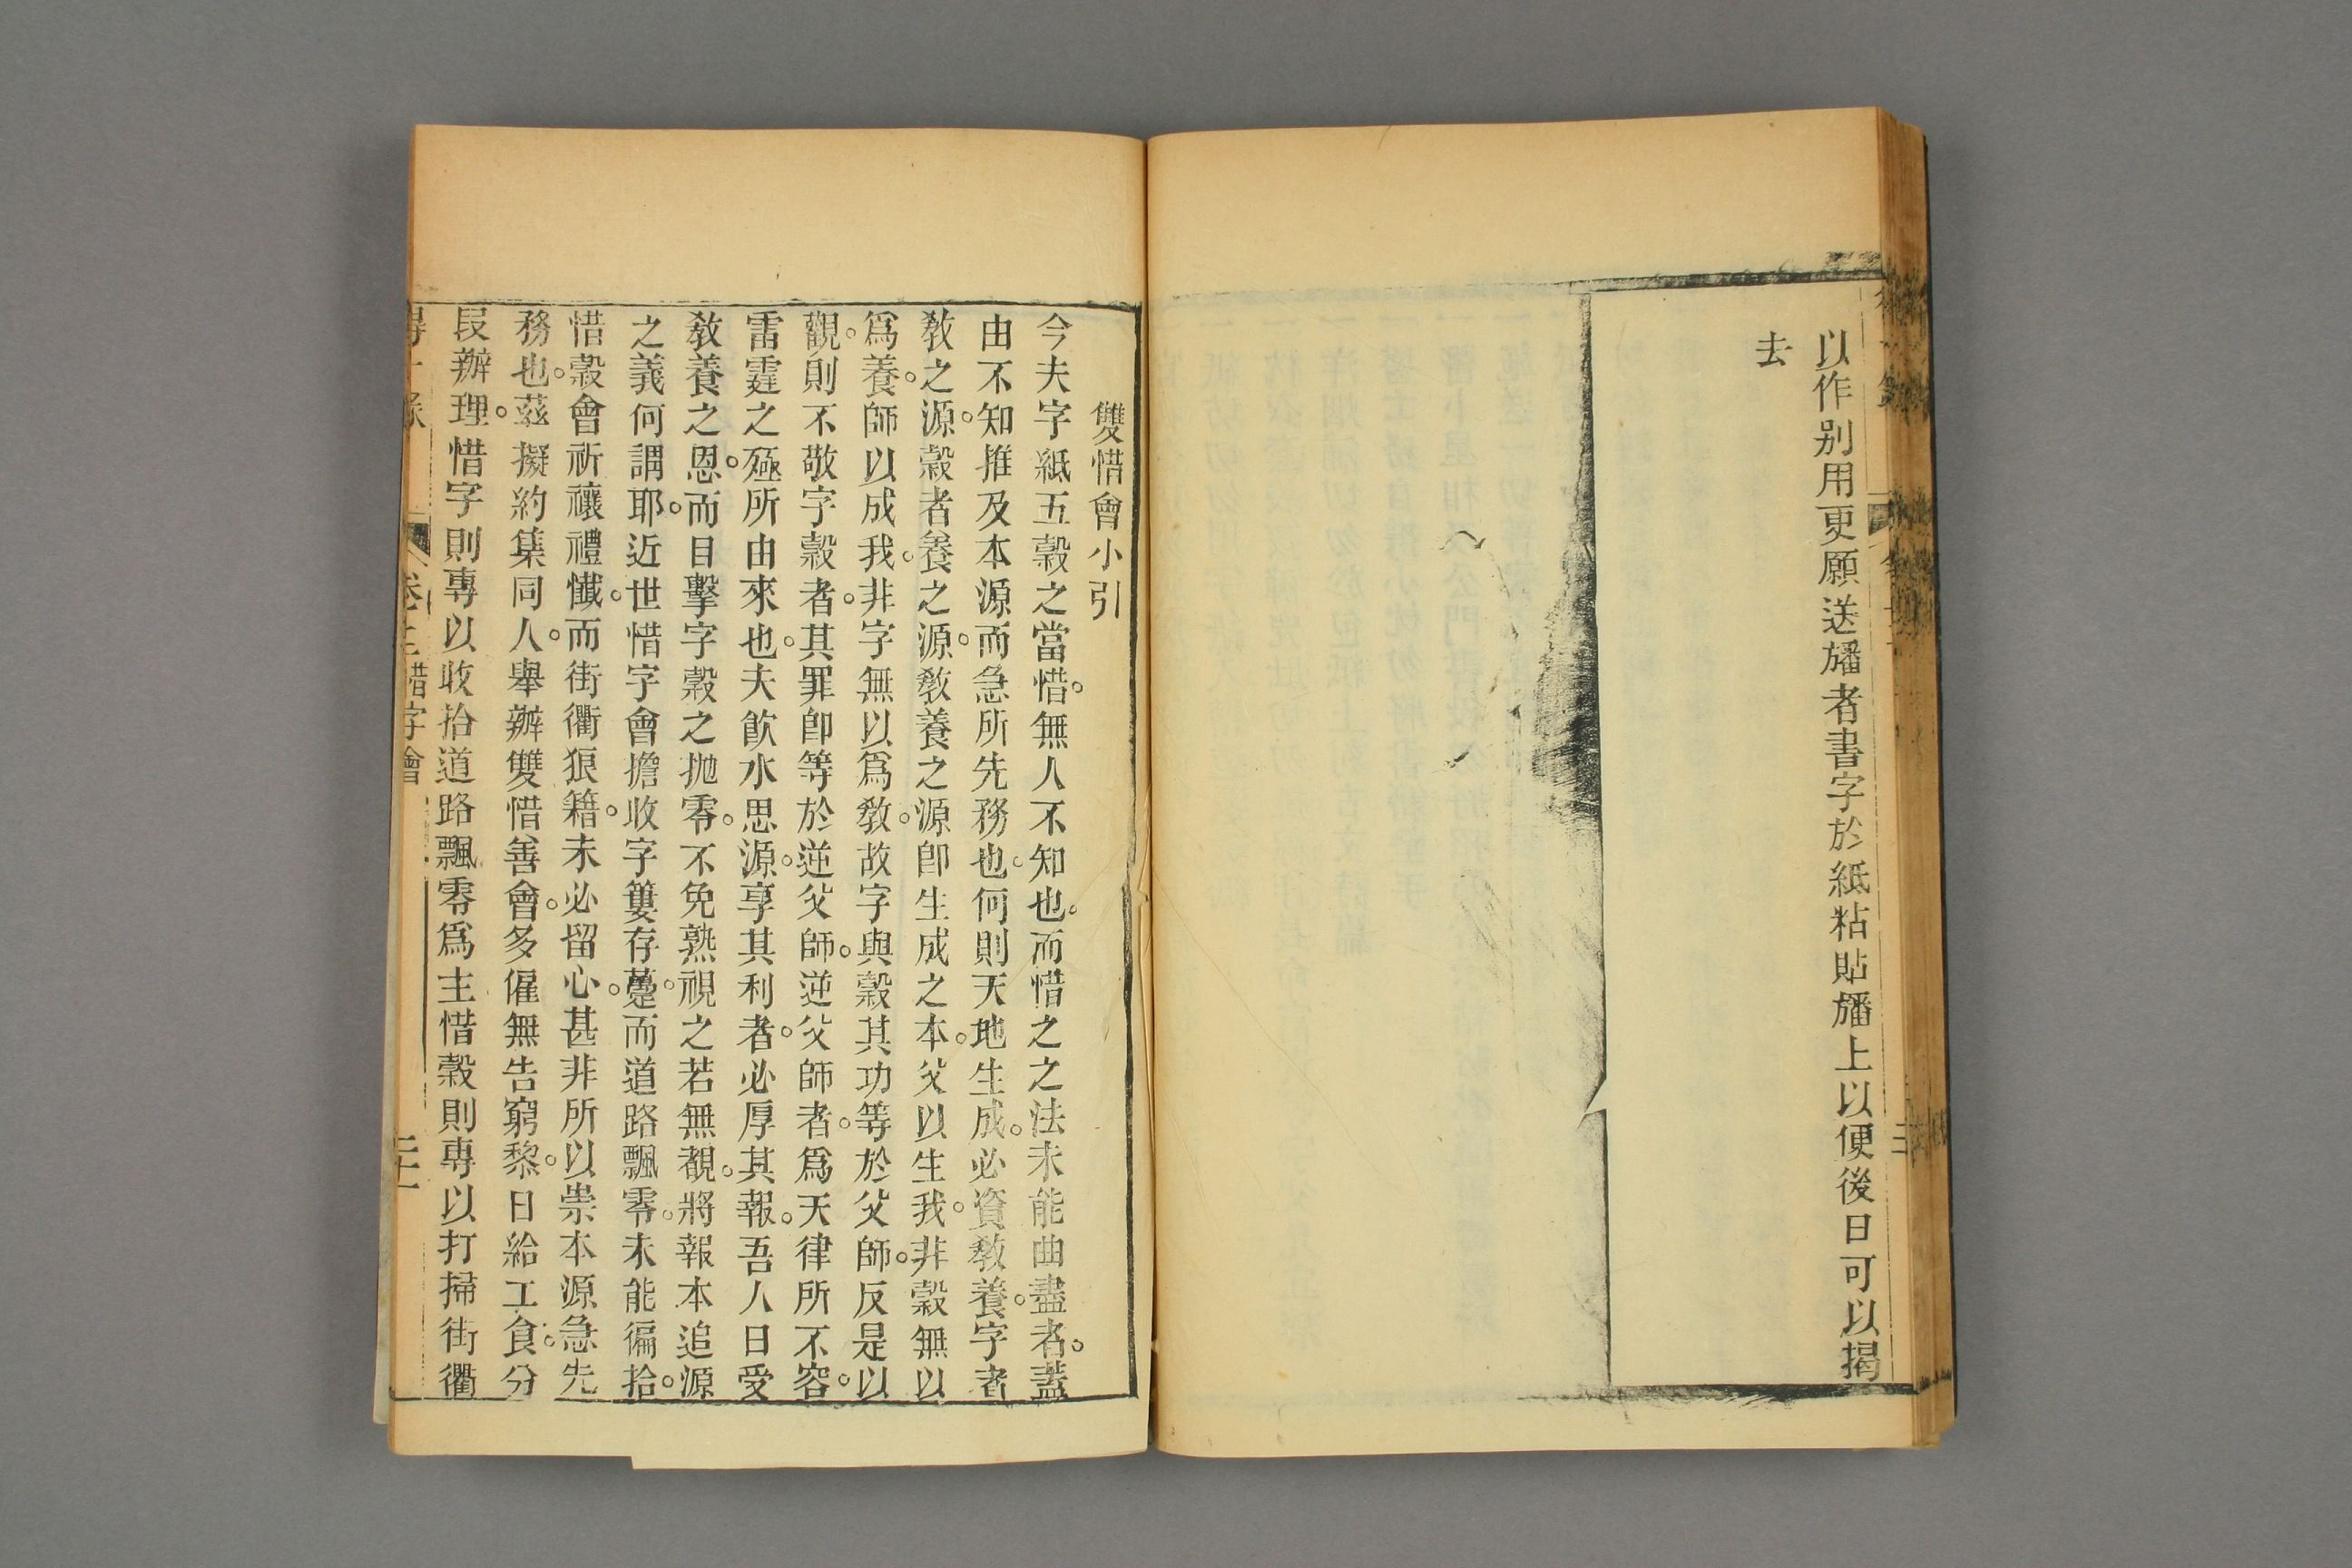 以作别用更願送旛者書字於紙粘貼旛上以便後日可以揭
去
雙惜會小引
今夫字紙五穀之當惜。無人不知也。而惜之之法未能曲盡者。蓋
由不知推及本源。而急所先務也。何則天地生成。必資教養。字者
教之源。穀者養之源。教養之源卽生成之本。父以生我。非穀無以
爲養。師以成我。非字無以爲教。故字與穀其功等於父師。反是以
觀。則不敬字穀者。其罪卽等於逆父師。逆父師者。爲天律所不容。
雷霆之殛所由來也。夫飮水思源。享其利者。必厚其報。吾人日受
教養之恩。而目擊字穀之抛零。不免熟視之若無覩。將報本追源
之義何謂耶。近世惜字會擔收字簍存藳。而道路飄零。未能徧拾。
惜穀會祈禳禮懺。而街衢狼籍。未必留心。甚非所以崇本源急先
務也。茲擬約集同人。舉辦雙惜善會。多僱無告窮黎。日給工食。分
叚辦理。惜字則專以收拾道路飄零爲主惜穀則專以打掃街衢
得一錄 卷十二惜字會